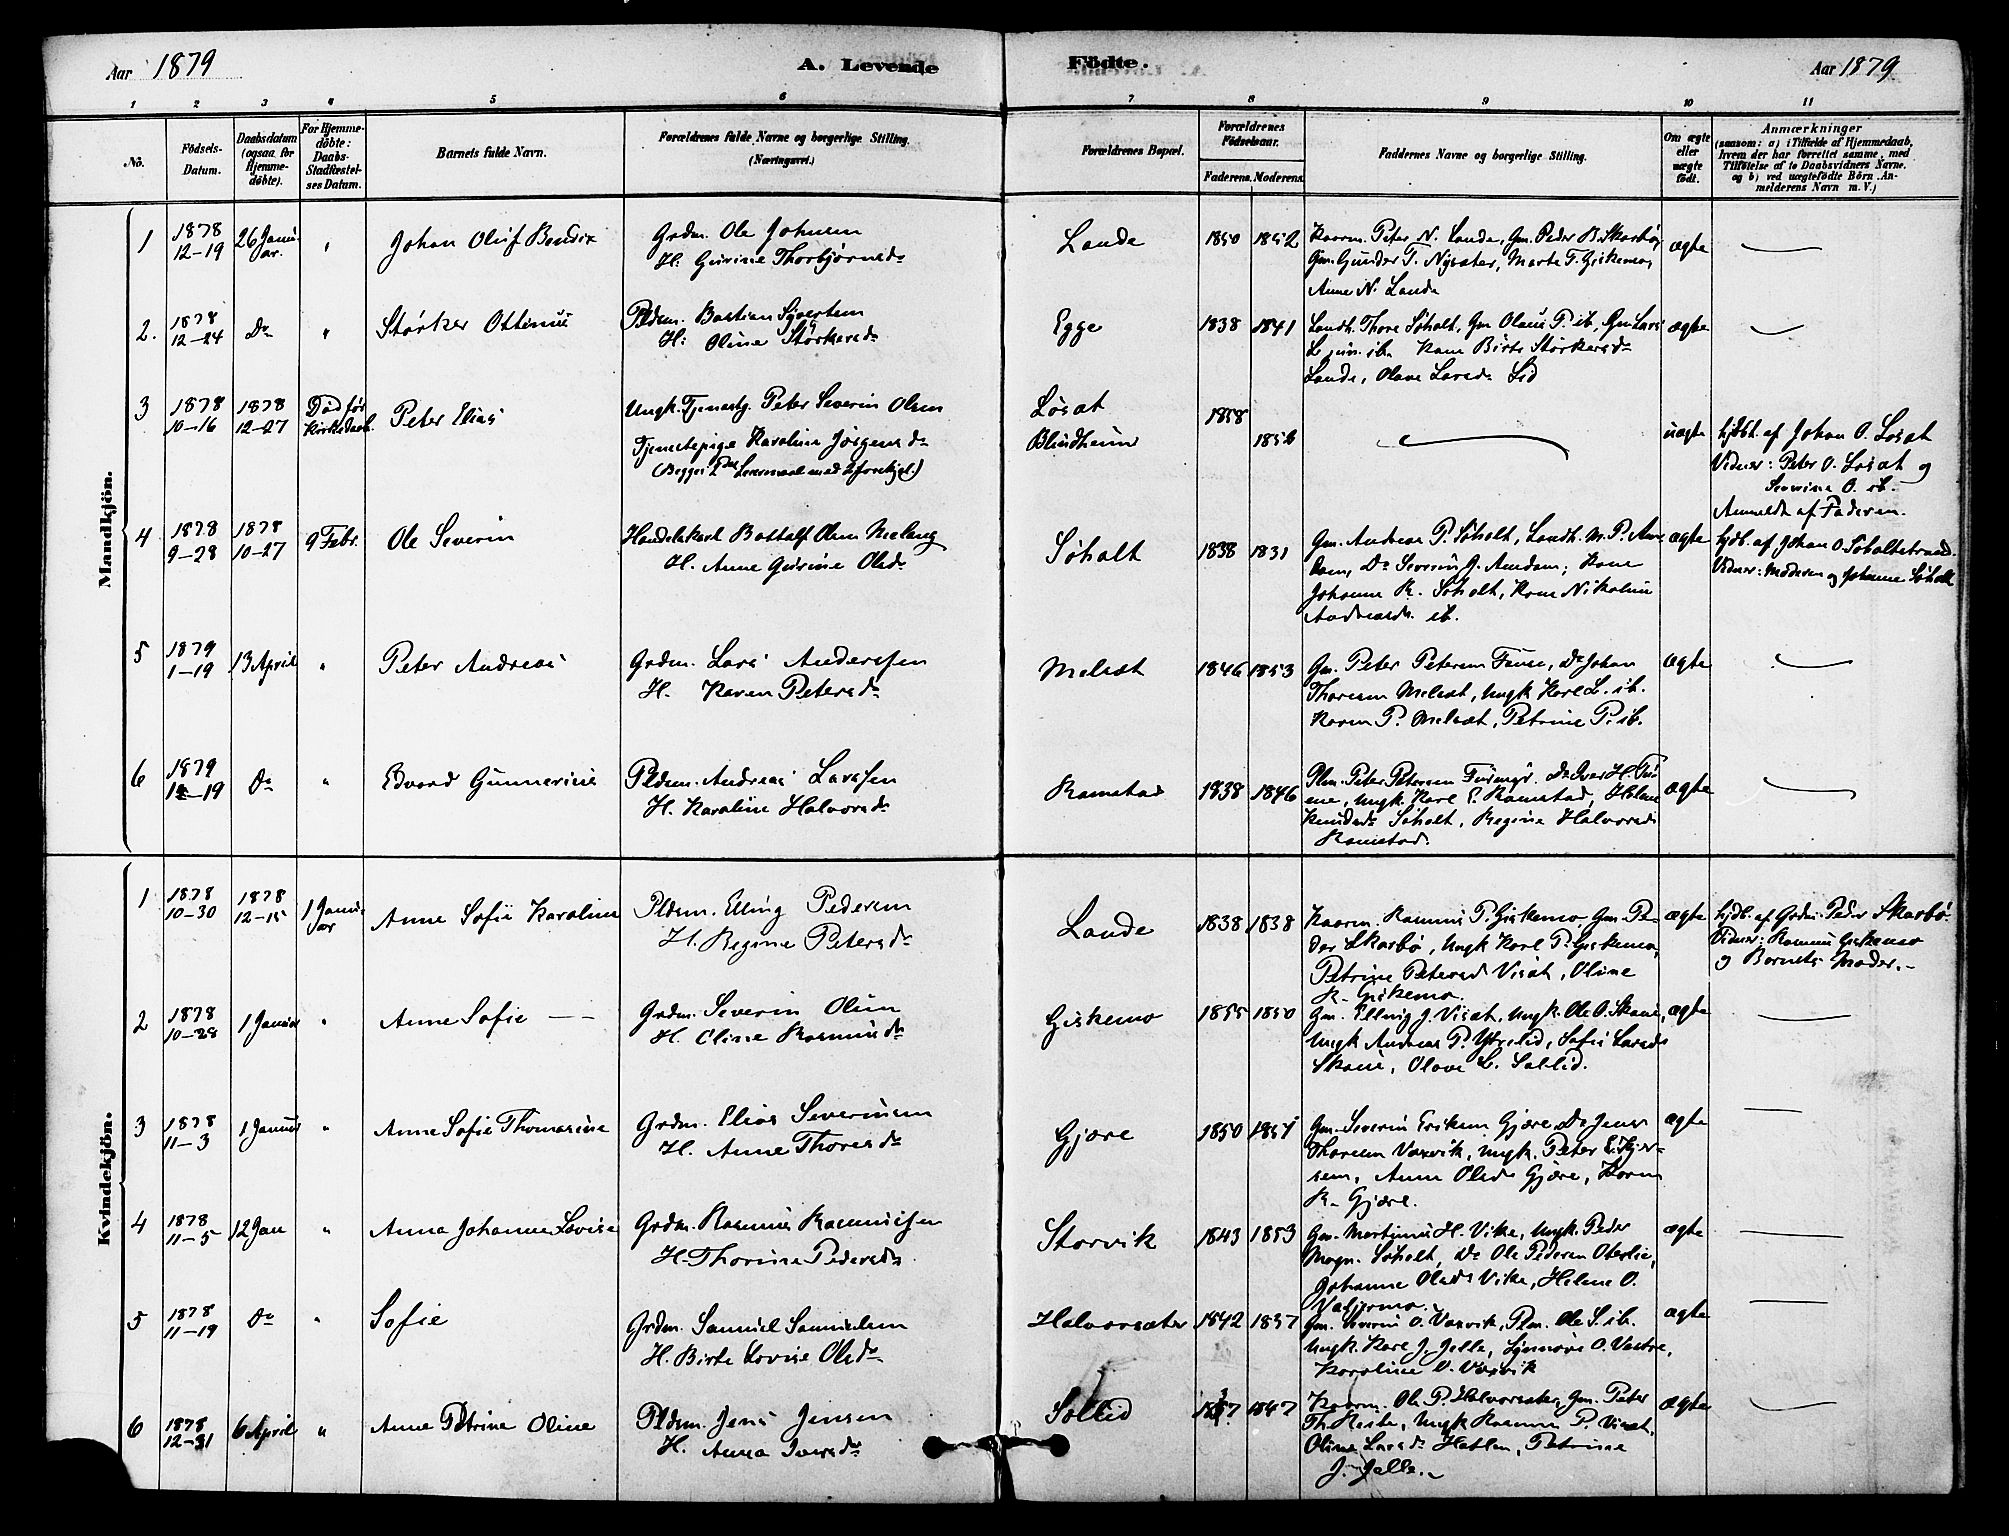 Aar 1879
A. Levende
Födte.
Aar 1879
1 2 3 4 5 6 7 8 9 10 11
No.
Födsels-
Datum.
Daabsdatum
(ogsaa for
Hjemme-
döbte).
For Hjemme-
döbte:
Daabs-
Stadfæstel-
ses Datum.
Barnets fulde Navn.
Forældrenes fulde Navne og borgerlige Stilling.
(Næringsvei.)
Forældrenes Bopæl.
Forældrenes
Födselsaar.
Faderens. Moderens.
Faddernes Navne og borgerlige Stilling.
Om ægte
eller
uægte
født.
Anmærkninger
(saasom: a) i Tilfælde af Hjemmedaab,
hvem der har forrettet samme, med
Tilföielse af to Daabsvidners Navne.
og b) ved uægtefödte Börn .An-
melderens Navn m. V.)
Mandkjön.
1
1878
12-19
26 Janu-
ar.
"
Johan Oluf Bendix
Grdm. Ole Johnsen
H: Gurine Thorbjørnsd.
Lande
1850 1852
Kaarm. Peter N. Lande, Gm. Peder B. Skarbø,
Gm. Gunder T. Nysæter, Marte T. Giskemo,
Anne N. Lande
ægte
2.
1878
12-24
Do
"
Størker Ottinus
Pldsm. Bastian Syvertsen
H: Oline Størkersd.
Egge
1838 1841
Landh. Thore Søholt, Gm Olaus P. ib, Gm Lars
ib. Kone Birte Størkersd.
Lande, Olave Larsd. Lid
ægte
3
1878
10-16
1878
12-27
Død før
Kirkedaab.
Peter Elias
Ungk. Tjenestg. Peter Severin Olsen
Tjenestepige Karoline Jørgensd.
Løset
Blindheim
1858
uægte
hjdbt. af Johan O. Løset
Vidner: Peter O. Løset og
Severine O. ib.
Anmeldt af Faderen.
4
1878
9-28
1878
10-27
9 Febr.
Ole Severin
Handelskarl Bottolf Olsen
H. Anne Gurine Olsd.
Søholt
1838 1831
Gm. Andreas P. Søholt, Landh. M. P. Am-
dam, Do Severin J. Amdam; Kone
Johanne R. Søholt, Kone Nikoline
Andreasd. ib.
ægte
hjdb. af Johan O. Søholtstrand.
Vidner: Moderen og Johanne Søholt
5
1879
1-19
13 April
"
Peter Andreas
Grdm. Lars Anderssen
H. Karen Petersd.
Melset
1846 1853
Gm. Peter Petersen Fause, Do Johan
Thoresen Melset, Ungk Karl L. ib.
Karen P. Melset, Petrine P. ib.
ægte
6
1879
1-19
Do
"
Edvard Gunnerius
Pldsm. Andreas Larssen
H. Karoline Halvorsd.
Ramstad
1838 1846
Plm. Peter Petersen, Do Ivar H.
Ungk. Karl E. Ramstad, Helene
Knudsd. Søholt, Regine Halvorsd.
Ramstad.
ægte
Kvindekjön.
1
1878
10-30
1878
12-15
1 Janu-
ar
Anne Sofie Karoline
Pldsm. Elling Pedersen
H. Regine Petersd.
Lande
1838 1838
Kaarm. Rasmus P. Giskemo, Gm. Pe-
der Skarbø, Ungk Karl P. Giskemo,
Petrine Petersd Viset, Oline
R. Giskemo.
ægte
hjdb. af Grdm. Peder Skarbø.
Vidner: Rasmus Giskemo
og Barnets Moder.-
2
1878
10-28
1 Januar
"
Anne Sofie
Grdm. Severin Olsen
H. Oline Rasmusd.
Giskemo
1855 1850
Gm. Elling J. Viset, Ungk. Ole O. Skaue,
Ungk Andreas P. Ytrelid, Sofie Larsd.
Skaue, Olave L. Sollid.
ægte
3
1878
11-3
1 Januar
"
Anne Sofie Thomasine
Grdm. Elias Severinsen
H. Anne Thoresd.
Gjære
1850 1851
Gm. Severin Eriksen Gjære, Do Jens
Thoresen Vaxvik, Ungk. Peter
Anne Olsd Gjære, Karen
R. Gjære.
ægte
4
1878
11-5
12 Jan
"
Anna Johanne Lovise
Grdm. Rasmus Rasmussen
H. Thorine Pedersd.
Storvik
1843 1853
Gm. Martinus H. Vike, Ungk. Peder
Mogn. Søholt, Do Ole Pedersen Oterlie,
Johanne Olsd. Vike, Helene O.
ægte
5
1878
11-19
Do
"
Sofie
Grdm. Samuel Samuelsen
H. Birte Lovise Olsd.
Halvorsæter
1842 1837
Gm. Severin O. Vaxvik, Plm. Ole S. ib.
Ungk. Karl J. Jelle, O. Vestre,
Karoline O. Vaxvik
ægte
6
1878
12-31
6 April
"
Anne Petrine Oline
Pldsm. Jens Jensen
H. Anna Iversd.
Sollid
1847
Kaarm. Ole P. Halvorsæter, Gm. Peter
Th. Hesle, Ungk Rasmus P. Viset,
Oline Larsd. Hatlen, Petrine
J. Jelle.
ægte